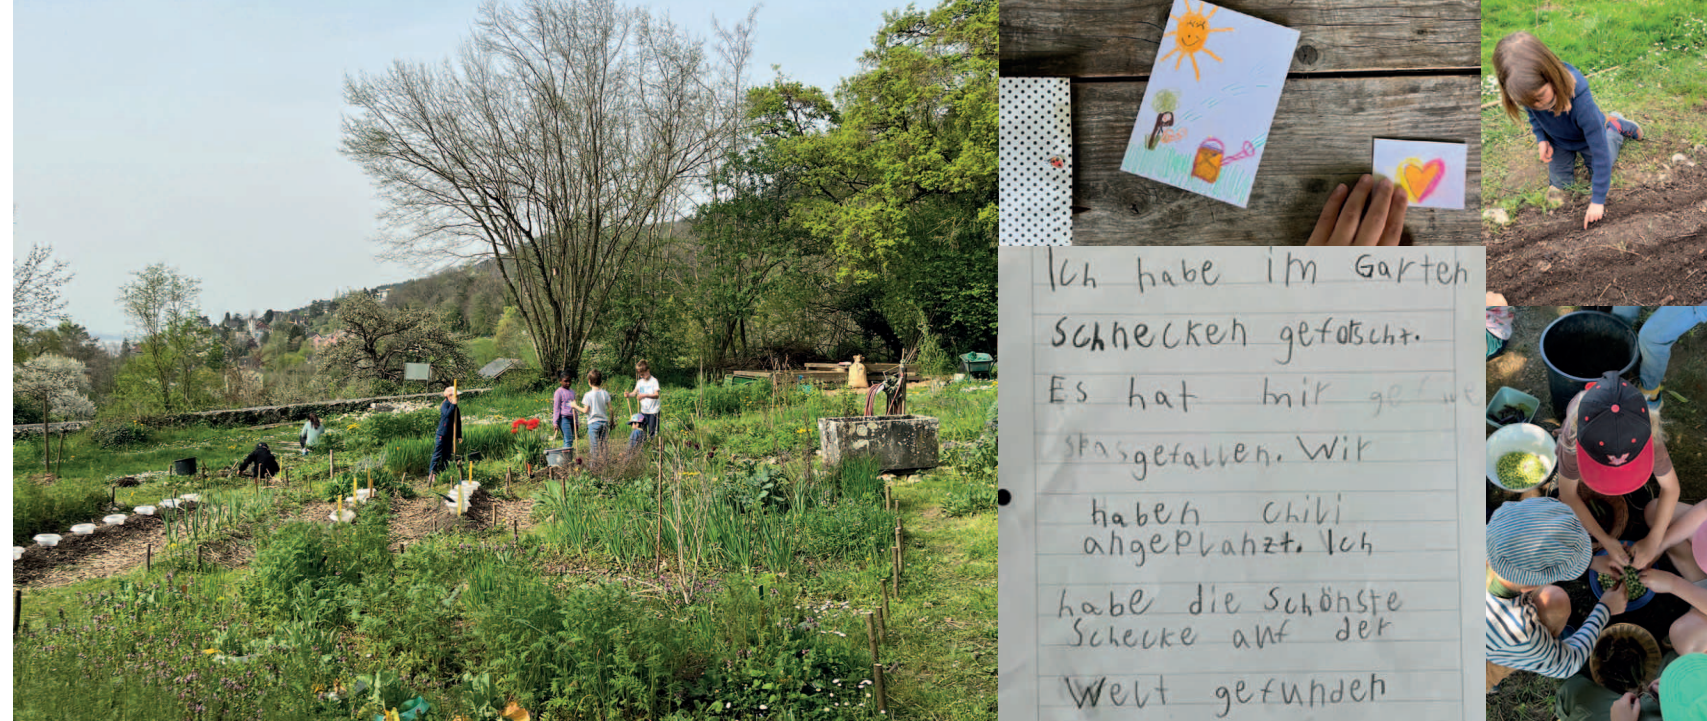 Ich habe im Garten
Schnecken geforscht.
Es hat mir
spas gefallen. Wir
haben chili
angeplanzt. Ich
habe die schönste
Schecke auf der
Welt gefunden